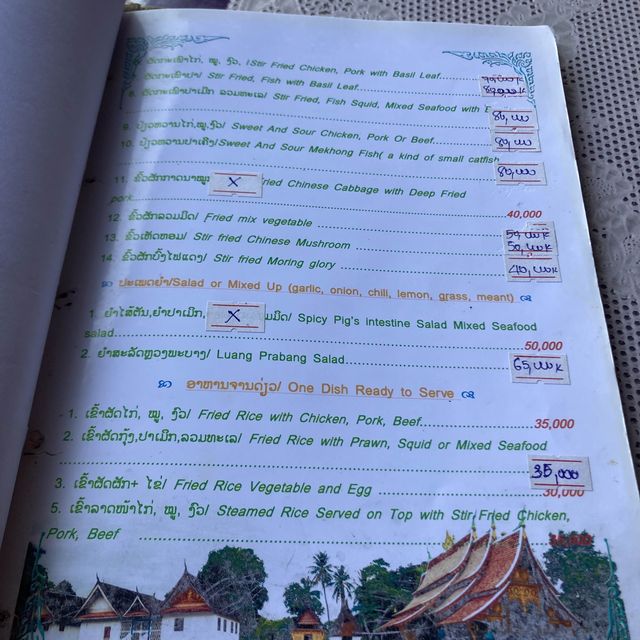 ຜັດກະເພົາໄກ່, ໝູ, ງົວ, /Stir Fried Chicken, Pork with Basil Leaf
ຜັດກະເພົາປາ/ Stir Fried, Fish with Basil Leaf
8. ຜັດກະເພົາປາເມິກ ລວມທະເລ/ Stir Fried, Fish Squid, Mixed Seafood with
9. ປຽ້ວຫວານໄກ່,ໝູ,ງົວ/ Sweet And Sour Chicken, Pork Or Beef
10. ປຽ້ວຫວານປາເຄິງ/Sweet And Sour Mekhong Fish( a kind of small catfish
11. ຂົ້ວຜັກກາດນາໝູ X ried Chinese Cabbage with Deep Fried
pork 40,000
12. ຂົ້ວຜັກລວມມິດ/ Fried mix vegetable
13. ຂົ້ວເຫັດຫອມ/ Stir fried Chinese Mushroom
14. ຂົ້ວຜັກບົ້ງໄຟແດງ/ Stir fried Moring glory
ປະເພດຍຳ/Salad or Mixed Up (garlic, onion, chili, lemon, grass, meant)
1. ຍຳໄສ້ຕັນ,ຍຳປາເມິກ, X ມມິດ/ Spicy Pig's intestine Salad Mixed Seafood
salad 50,000
2. ຍຳສະລັດຫຼວງພະບາງ/ Luang Prabang Salad 65,000K
ອາຫານຈານດ່ຽວ/ One Dish Ready to Serve
1. ເຂົ້າຜັດໄກ່, ໝູ, ງົວ/ Fried Rice with Chicken, Pork, Beef 35,000
2. ເຂົ້າຜັດກຸ້ງ,ປາເມິກ,ລວມທະເລ/ Fried Rice with Prawn, Squid or Mixed Seafood
35,000
3. ເຂົ້າຜັດຜັກ+ ໄຂ່/ Fried Rice Vegetable and Egg 30,000
5. ເຂົ້າລາດໜ້າໄກ່, ໝູ, ງົວ/ Steamed Rice Served on Top with Stir Fried Chicken,
Pork, Beef